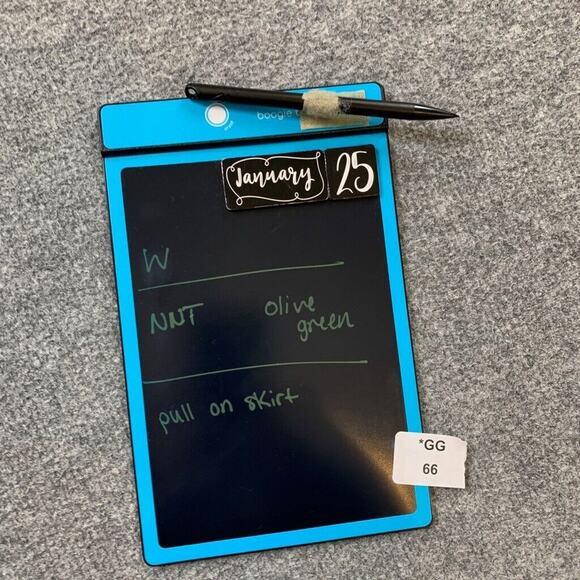 boogie
January 25
W
NNT olive
green
pull on skirt
*GG
66